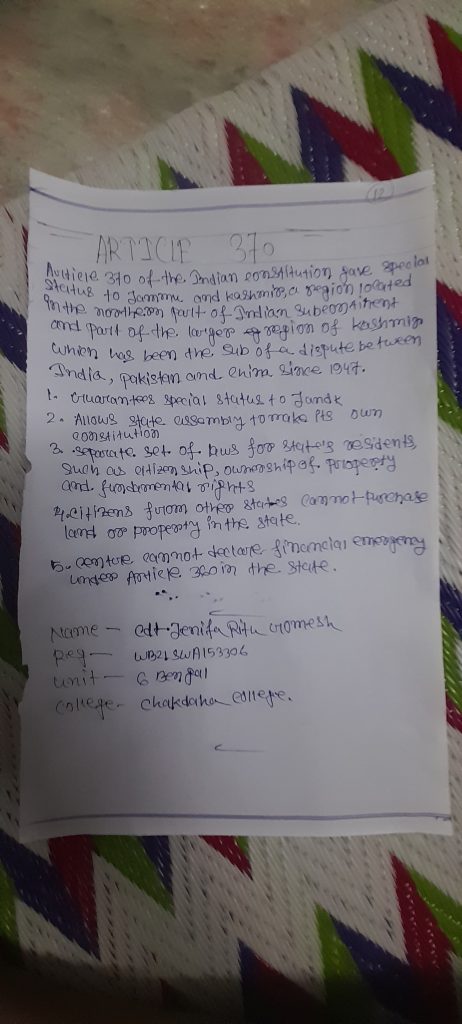 (12)
ARTICLE 370
Article 370 of the Indian constitution gave special
status to Jammu and kashmir, a region located
in the northern part of Indian Subcontinent
and part of the larger region of kashmir
which has been the sub of a dispute between
India, pakistan and china since 1947.
1. Guarantees special status to JandK
2. Allows state assembly to make its own
constitution
3. separate set of laws for state's residents,
such as citizenship, ownership of property
and fundamental rights
4. citizens from other states cannot purchase
land or property in the state.
5. centre cannot declare financial emergency
under Article 360 in the state.
Name - cdt. Jenifa Ritu Gomesh
Reg - WB21SWA153306
unit - 6 Bengal
college - chakdaha college.